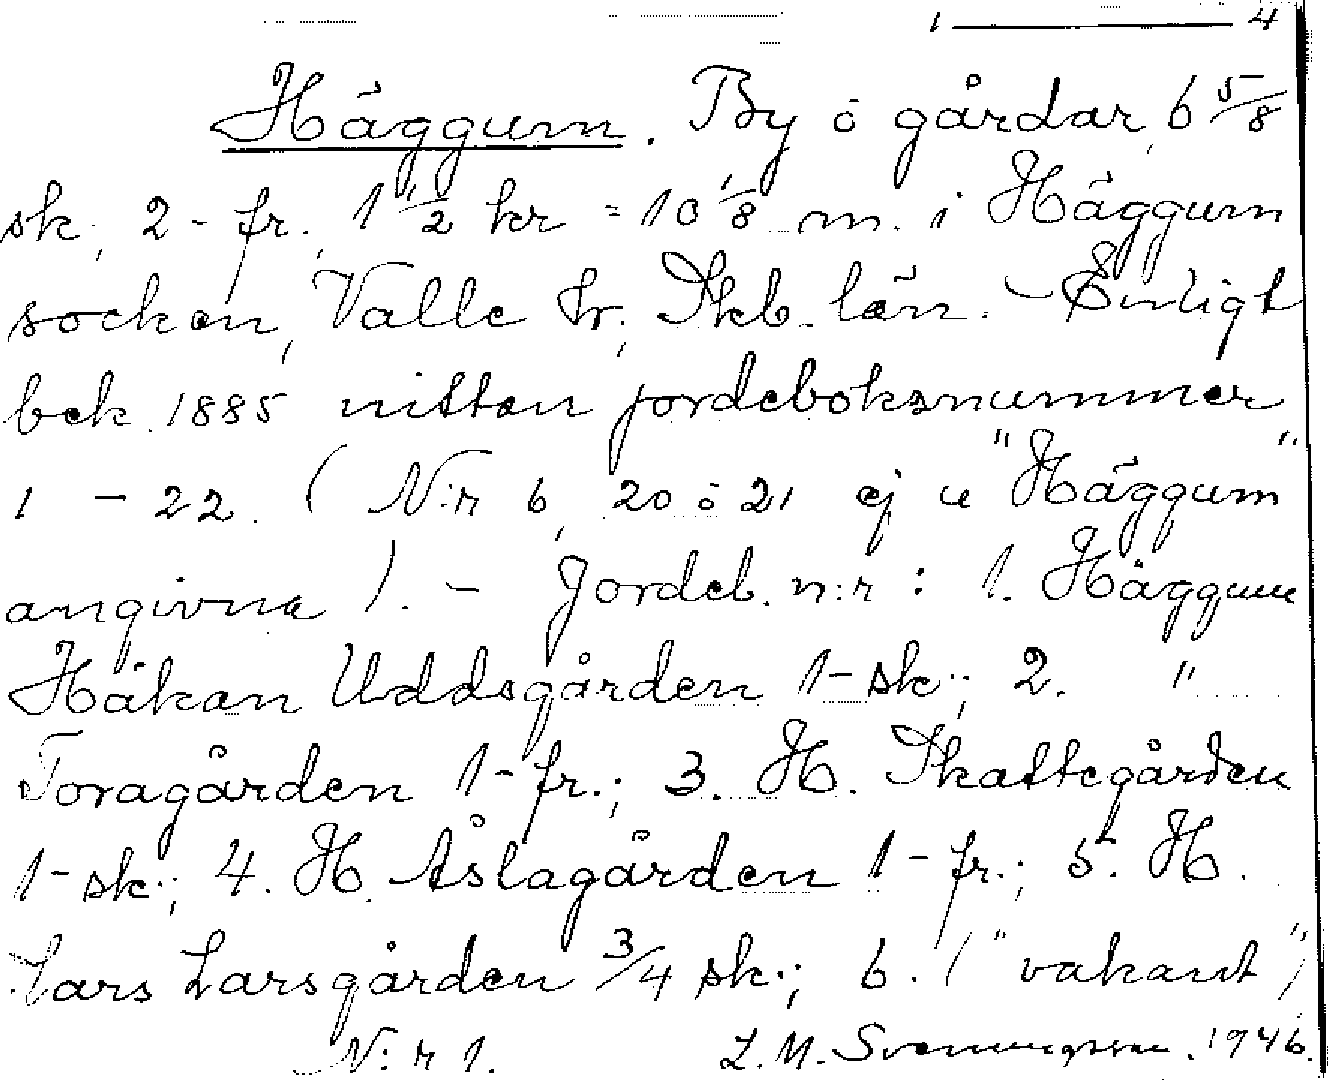 1 — 4
Häggum. By ö gårdar, 6 5/8
sk, 2 - fr., 1 1/2 kr = 10 1/8 m. i Häggum
socken, Valle hr, Skb. län. - Enligt
bek. 1885 nitton jordeboksnummer
1 - 22. (N:r 6, 20 o 21 ej u "Häggum"
angivna). - Jordeb. n:r : 1. Häggum
Håkan Uddsgården 1 - sk.; 2. "
Toragården 1 - fr.; 3. H. Skattegården
1 - sk.; 4. H. Åslagården 1 - fr.; 5. H.
Lars Larsgården 3/4 sk.; 6. ("vakant")
N:r 1. L. M. Svenungsson. 1946.